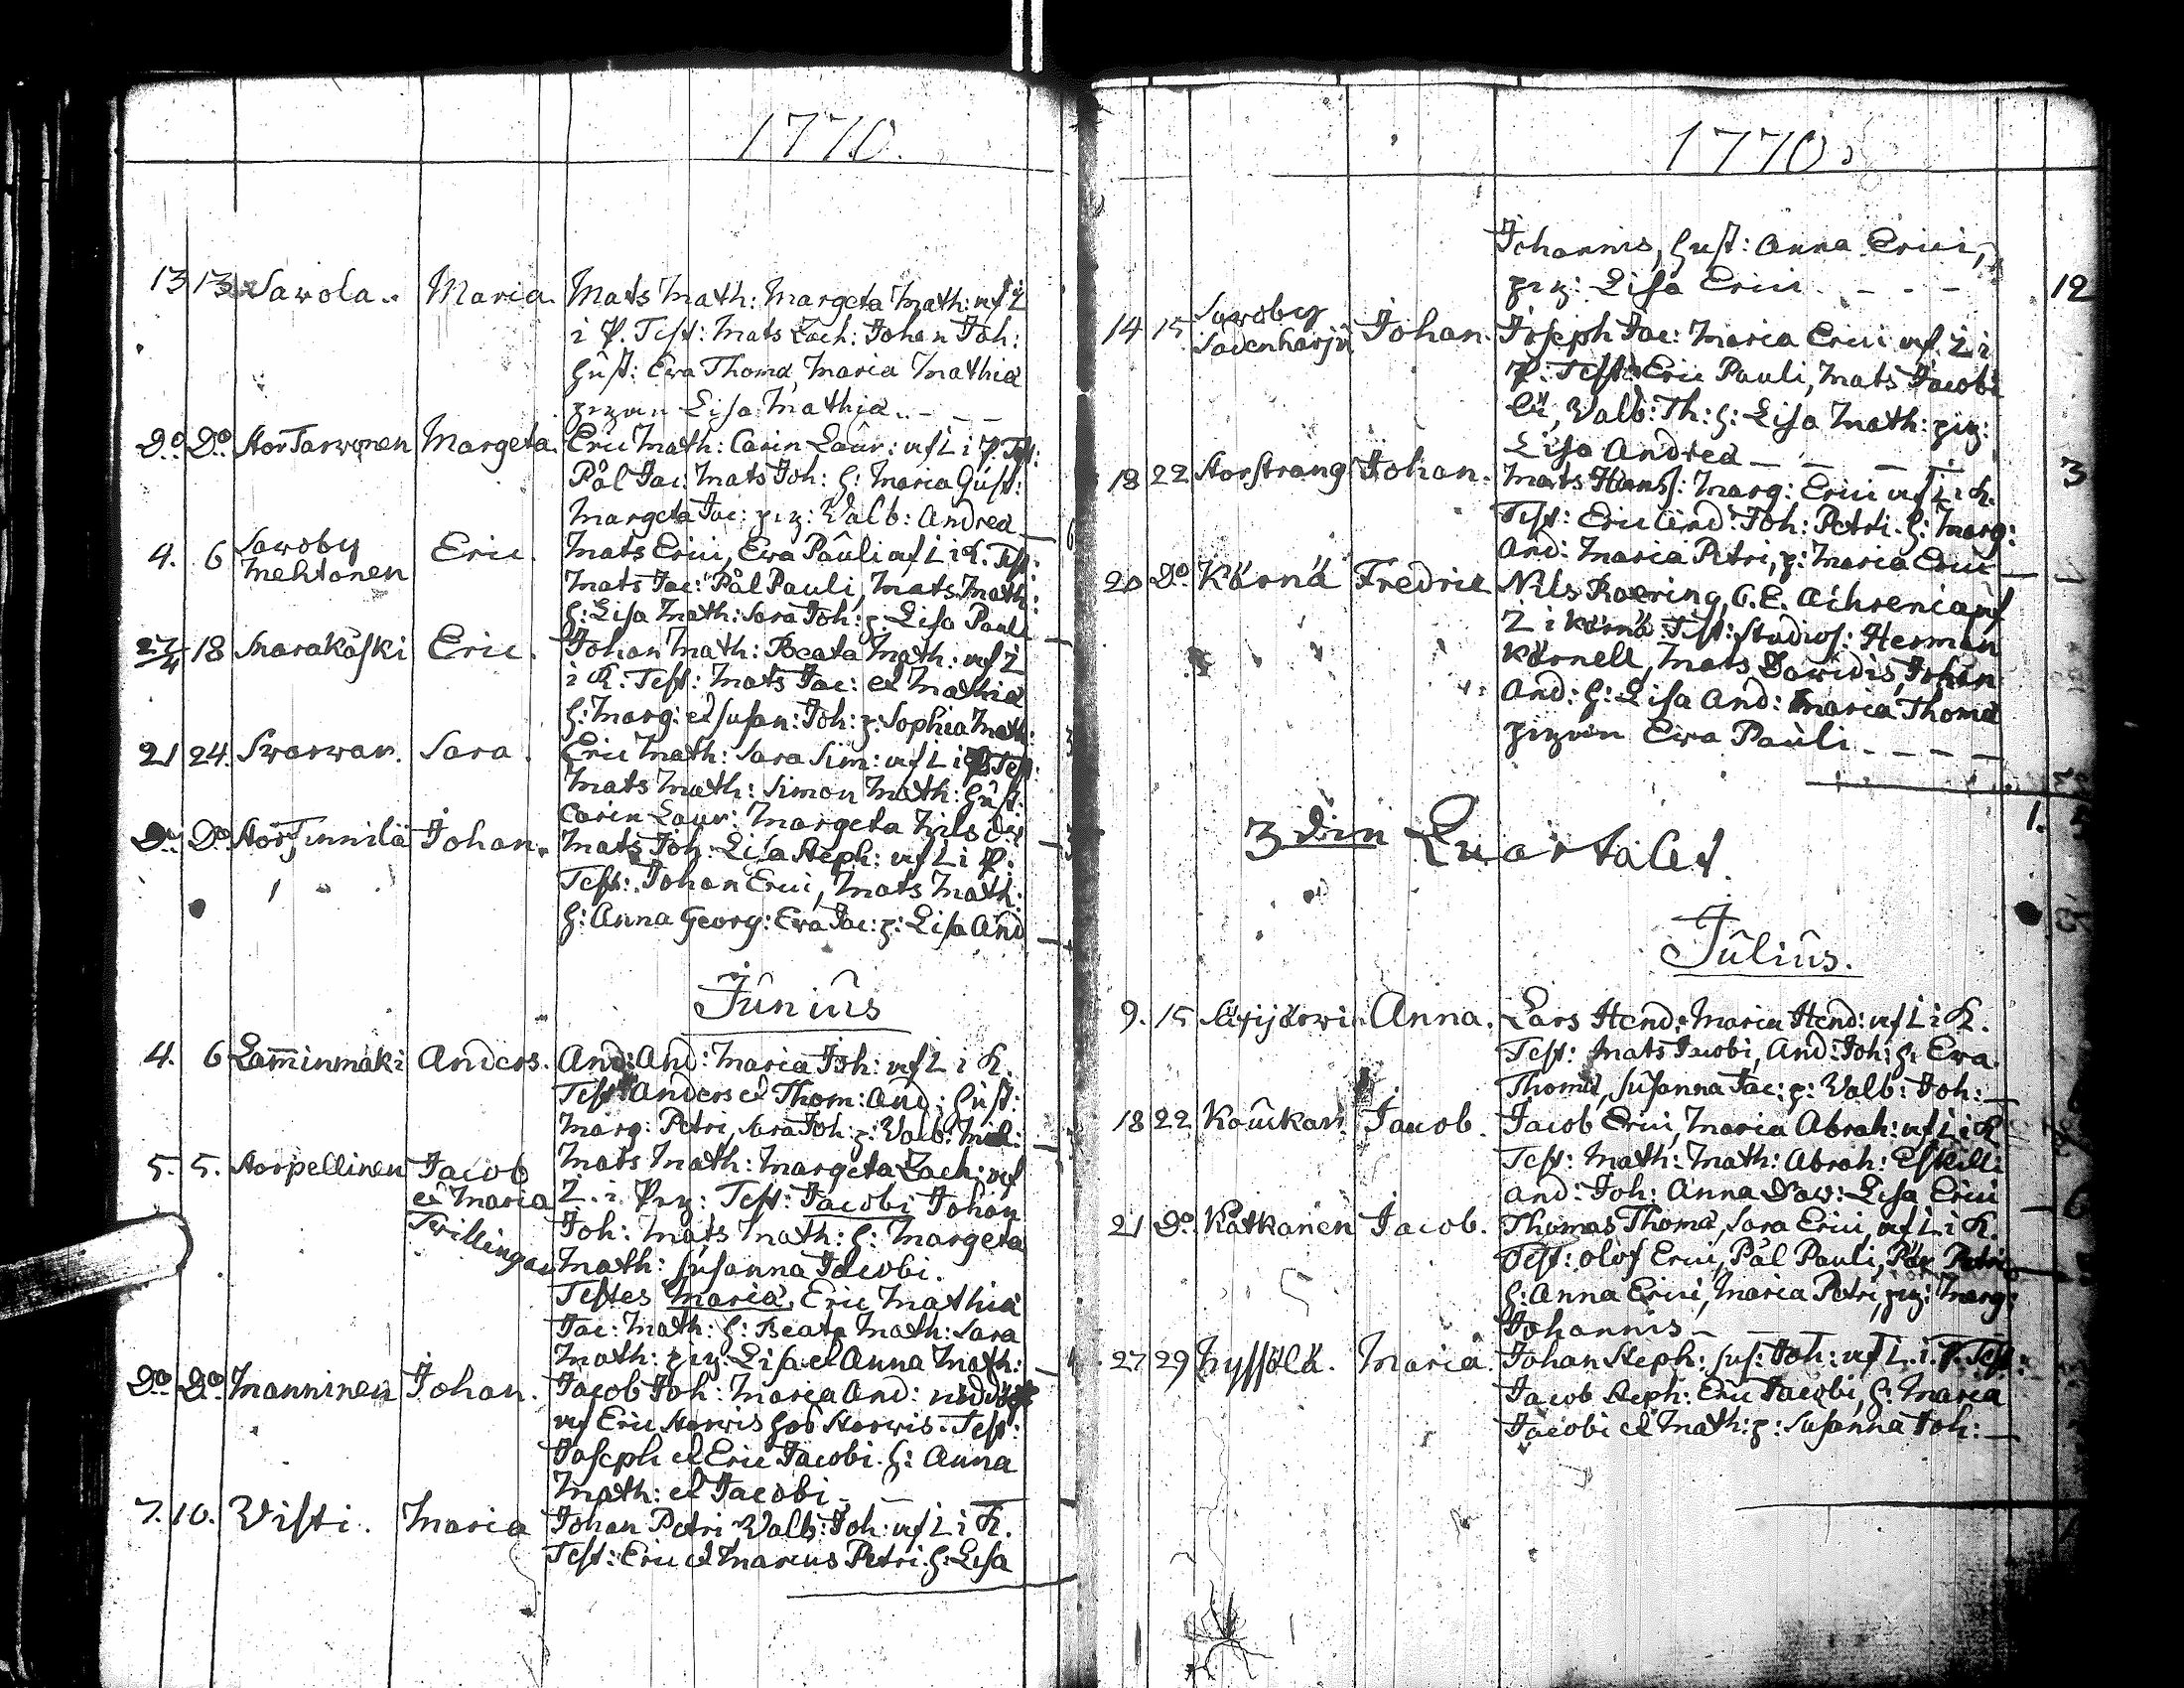 1770.
13 13 Sawola. Maria. Mats Math: Margeta Math: uf Z
i P. Test: Mats Zach: Johan Joh:
hust: Ewa Thomæ, Maria Mathiæ
pigan Lisa Mathiæ. - - -
Do. Do. Stor Tarwonen Margeta. Eric Math: Carin Laur: uf Z i P. Test:
Pål Jac: Mats Joh: h: Maria Gust:
Margeta Jac: pig: Walb: Andreæ
4. 6 Sawoby Mehtonen Eric. Mats Erici, Ewa Pauli uf Z i K. Test:
Mats Jac: Pål Pauli, Mats Math:
h: Lisa Math: Sara Joh: p: Lisa Pauli
27/4 18 Marakåski Eric. Johan Math: Beata Math: uf Z
i K: Test: Mats Jac: et Mathiæ
h: Marg: et Susan: Joh: p: Sophia Math:
21 24. Swarwar. Sara. Eric Math: Sara Sim: uf Z i P. Test:
Mats Math: Simon Math: hust:
Carin Laur: Margeta Nils
Do. Do. Stor Junnila Johan. Mats Joh: Lisa Steph: uf Z i P.
Test: Johan Erici, Mats Math:
h: Anna Georg: Ewa Jac: p: Lisa And
Junius
4. 6 Lam̄inmäki Anders. And: And: Maria Joh: uf Z i K.
Test: Anders et Thom: And: hust:
Marg: Petri, Sara Joh: p: Walb: Mich:
5. 5. Storpellinen Jacob Mats Math: Margeta Zach: uf
et Maria Z. i. Pig: Test: Jacobi Johan
Twillingar Joh: Mats Math: h: Margeta
Math: Susanna Jacobi.
Testes Maria, Eric Mathiæ
Jac: Math: h: Beata Math: Sara
Math: pig: Lisa et Anna Math:
Do. Do. Manninen Johan. Jacob Joh: Maria And:
uf Eric Storwis hos Storwis. Test:
Joseph et Eric Jacobi. h: Anna
Math: et Jacobi -
7. 10. Wisti. Maria Johan Petri Walb: Joh: uf Z i K.
Test: Eric et Marcus Petri. h: Lisa
1770.
Johannis, hust: Anna Erici,
pig: Lisa Erici - - - - 12
14 15 Sawoby Sadenharju Johan. Joseph Jac: Maria Erici uf Z i
P: Test: Eric Pauli, Mats Jacobi
Walb: Th: h: Lisa Math: pig:
Lisa Andreæ - - - - 3
18 22 Storstrang Johan. Mats Hanss: Marg: Erici uf Z i K.
Test: Eric And: Joh: Petri. h: Marg:
And: Maria Petri, p: Maria Erici
20 Do Körnä Fredric Nils Roering, C. E. Achrenia uf
Z i Körnä. Test: Studios: Herman
Körnell, Mats Dawidis, Johan
And: h: Lisa And: Maria Thomæ
pigan Ewa Pauli - - - -
1.
3 din Quartalet.
Julius.
9. 15 Läsijärwi Anna. Lars Hend: Maria Hend: uf Z i K.
Test: Mats Jacobi, And: Joh: h: Ewa
Thomæ, Susanna Jac: p: Walb: Joh: -
18 22 Kouckari Jacob. Jacob Erici, Maria Abrah: uf Z i K
Test: Math: Math: Abrah: Eskilli
And: Joh: Anna Daw: Lisa Erici - 6
21 Do. Kåtkanen Jacob. Thomas Thomæ, Sara Erici, uf Z i K.
Test: Olof Erici, Pål Pauli, Pär Petri
h: Anna Erici, Maria Petri, pig: Marg:
Johannis -
27 29 Nyssölä. Maria. Johan Steph: Sus: Joh: uf Z. i. P. Test:
Jacob Steph: Eric Jacobi, h: Maria
Jacobi et Math: p: Susanna Joh: -